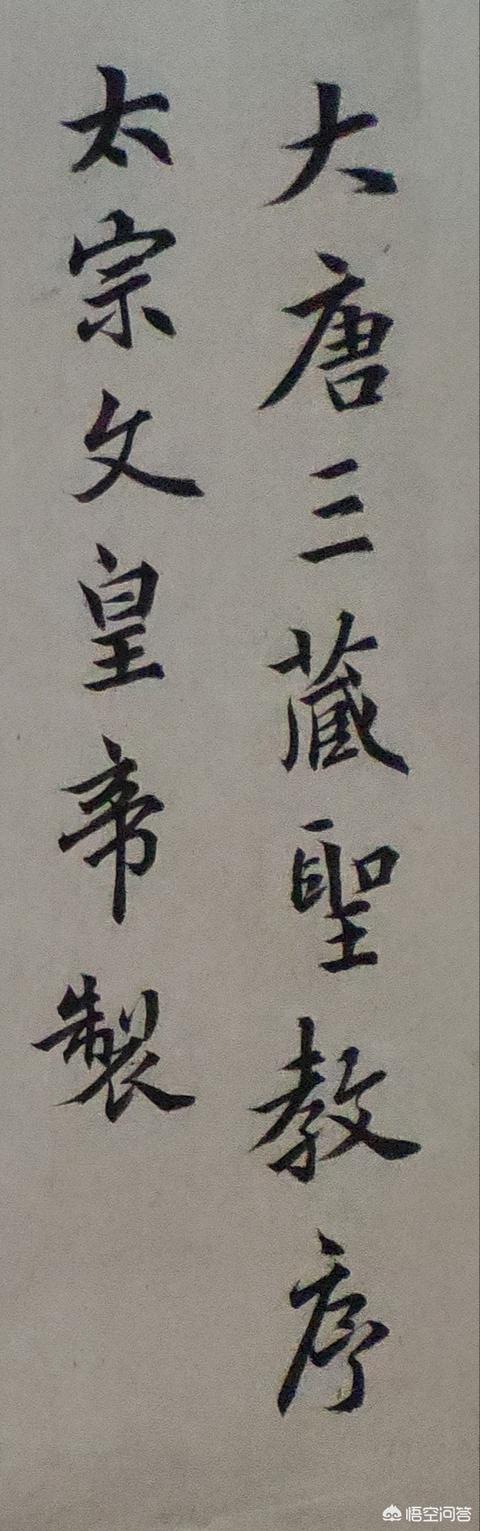 大唐三藏聖教序
太宗文皇帝製
悟空问答